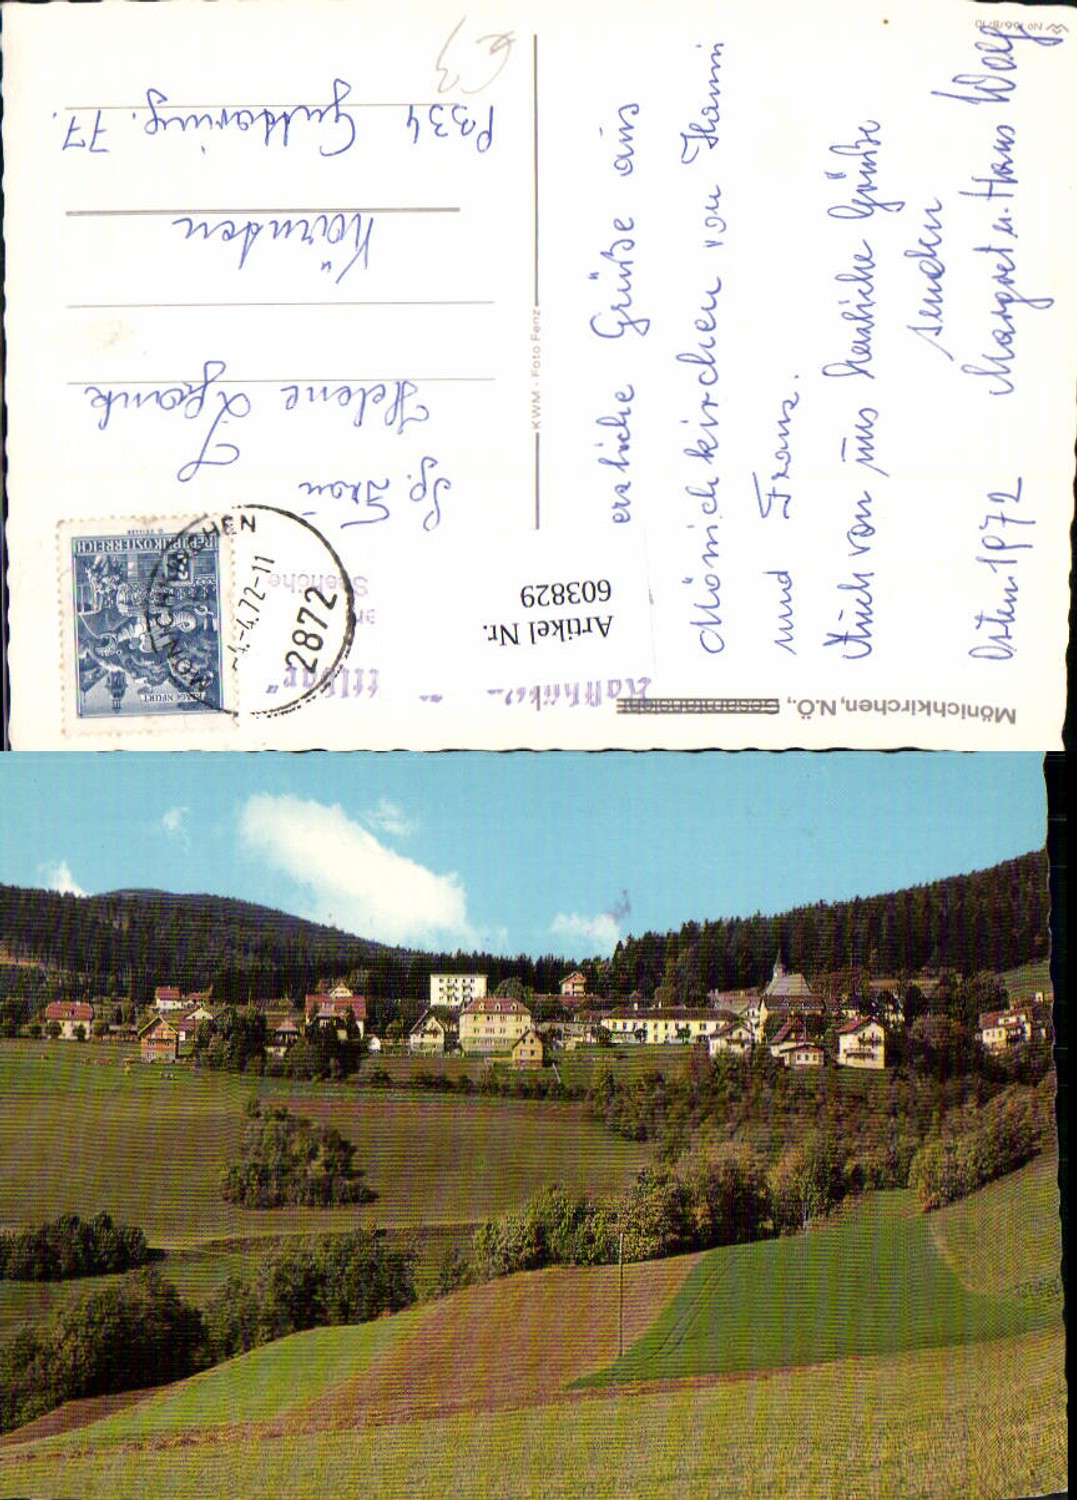 Mönichkirchen, N.Ö., Gesamtansicht
No 166/8/70
KWM - Foto Fenz
Ostern 1972
erzliche Grüße aus
Mönichkirchen von Hanni
und Franz.
Auch von uns herzliche Grüße
senden
Margret u. Hans Wolf
REPUBLIK ÖSTERREICH
KLAGENFURT
MÖNICHKIRCHEN
-4.72-11
2872
Sp. Frau
Helene
Kärnten
9334 Guttaring. 77.
€3
Artikel Nr.
603829